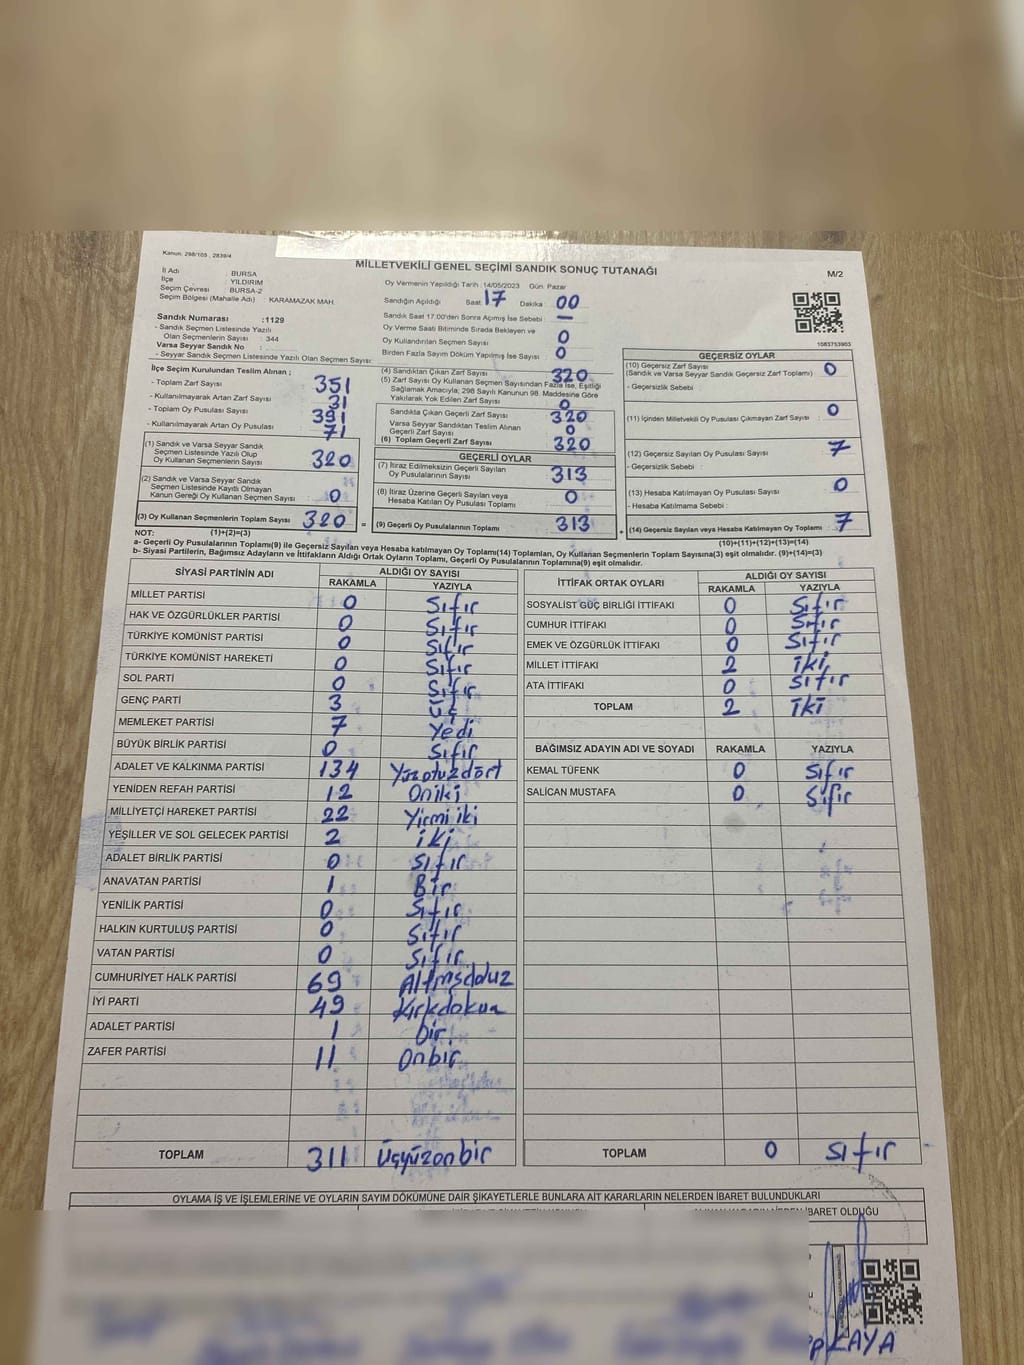 Kanun: 298/105 , 2839/4
MİLLETVEKİLİ GENEL SEÇİMİ SANDIK SONUÇ TUTANAĞI
M/2
İl Adı : BURSA
İlçe : YILDIRIM
Seçim Çevresi : BURSA-2
Seçim Bölgesi (Mahalle Adı) : KARAMAZAK MAH.
Sandık Numarası : 1129
- Sandık Seçmen Listesinde Yazılı
Olan Seçmenlerin Sayısı : 344
Varsa Seyyar Sandık No :
- Seyyar Sandık Seçmen Listesinde Yazılı Olan Seçmen Sayısı:
Oy Vermenin Yapıldığı Tarih : 14/05/2023 Gün: Pazar
Sandığın Açıldığı Saat 17 Dakika 00
Sandık Saat 17.00'den Sonra Açımış İse Sebebi : —
Oy Verme Saati Bitiminde Sırada Bekleyen ve
Oy Kullandırılan Seçmen Sayısı : 0
Birden Fazla Sayım Döküm Yapılmış İse Sayısı : 0
1083753903
İlçe Seçim Kurulundan Teslim Alınan ;
- Toplam Zarf Sayısı : 351
- Kullanılmayarak Artan Zarf Sayısı : 31
- Toplam Oy Pusulası Sayısı : 391
- Kullanılmayarak Artan Oy Pusulası : 71
(1) Sandık ve Varsa Seyyar Sandık
Seçmen Listesinde Yazılı Olup
Oy Kullanan Seçmenlerin Sayısı : 320
(2) Sandık ve Varsa Seyyar Sandık
Seçmen Listesinde Kayıtlı Olmayan
Kanun Gereği Oy Kullanan Seçmen Sayısı : 0
(3) Oy Kullanan Seçmenlerin Toplam Sayısı : 320 =
(1)+(2)=(3)
(4) Sandıktan Çıkan Zarf Sayısı : 320
(5) Zarf Sayısı Oy Kullanan Seçmen Sayısından Fazla İse, Eşitliği
Sağlamak Amacıyla; 298 Sayılı Kanunun 98. Maddesine Göre
Yakılarak Yok Edilen Zarf Sayısı : 0
Sandıkta Çıkan Geçerli Zarf Sayısı : 320
Varsa Seyyar Sandıktan Teslim Alınan
Geçerli Zarf Sayısı : 0
(6) Toplam Geçerli Zarf Sayısı : 320
GEÇERLİ OYLAR
(7) İtiraz Edilmeksizin Geçerli Sayılan
Oy Pusulalarının Sayısı : 313
(8) İtiraz Üzerine Geçerli Sayılan veya
Hesaba Katılan Oy Pusulası Toplamı : 0
(9) Geçerli Oy Pusulalarının Toplamı : 313 +
GEÇERSİZ OYLAR
(10) Geçersiz Zarf Sayısı : 0
(Sandık ve Varsa Seyyar Sandık Geçersiz Zarf Toplamı)
- Geçersizlik Sebebi :
(11) İçinden Milletvekili Oy Pusulası Çıkmayan Zarf Sayısı : 0
(12) Geçersiz Sayılan Oy Pusulası Sayısı : 7
- Geçersizlik Sebebi :
(13) Hesaba Katılmayan Oy Pusulası Sayısı : 0
- Hesaba Katılmama Sebebi :
(14) Geçersiz Sayılan veya Hesaba Katılmayan Oy Toplamı : 7
(10)+(11)+(12)+(13)=(14)
NOT:
a- Geçerli Oy Pusulalarının Toplamı(9) ile Geçersiz Sayılan veya Hesaba katılmayan Oy Toplamı(14) Toplamları, Oy Kullanan Seçmenlerin Toplam Sayısına(3) eşit olmalıdır. (9)+(14)=(3)
b- Siyasi Partilerin, Bağımsız Adayların ve İttifakların Aldığı Ortak Oyların Toplamı, Geçerli Oy Pusulalarının Toplamına(9) eşit olmalıdır.
SİYASİ PARTİNİN ADI ALDIĞI OY SAYISI
RAKAMLA YAZIYLA
MİLLET PARTİSİ 0 Sıfır
HAK VE ÖZGÜRLÜKLER PARTİSİ 0 Sıfır
TÜRKİYE KOMÜNİST PARTİSİ 0 Sıfır
TÜRKİYE KOMÜNİST HAREKETİ 0 Sıfır
SOL PARTİ 0 Sıfır
GENÇ PARTİ 3 üç
MEMLEKET PARTİSİ 7 Yedi
BÜYÜK BİRLİK PARTİSİ 0 Sıfır
ADALET VE KALKINMA PARTİSİ 134 Yüzotuzdört
YENİDEN REFAH PARTİSİ 12 Oniki
MİLLİYETÇİ HAREKET PARTİSİ 22 Yirmi iki
YEŞİLLER VE SOL GELECEK PARTİSİ 2 iki
ADALET BİRLİK PARTİSİ 0 Sıfır
ANAVATAN PARTİSİ 1 Bir
YENİLİK PARTİSİ 0 Sıfır
HALKIN KURTULUŞ PARTİSİ 0 Sıfır
VATAN PARTİSİ 0 Sıfır
CUMHURİYET HALK PARTİSİ 69
İYİ PARTİ 49
ADALET PARTİSİ 1 bir
ZAFER PARTİSİ 11 Onbir
TOPLAM 311 üçyüzonbir
İTTİFAK ORTAK OYLARI ALDIĞI OY SAYISI
RAKAMLA YAZIYLA
SOSYALİST GÜÇ BİRLİĞİ İTTİFAKI 0 Sıfır
CUMHUR İTTİFAKI 0 Sıfır
EMEK VE ÖZGÜRLÜK İTTİFAKI 0 Sıfır
MİLLET İTTİFAKI 2 iki
ATA İTTİFAKI 0 Sıfır
TOPLAM 2 iki
BAĞIMSIZ ADAYIN ADI VE SOYADI RAKAMLA YAZIYLA
KEMAL TÜFENK 0 Sıfır
SALİCAN MUSTAFA 0 Sıfır
TOPLAM 0 Sıfır
OYLAMA İŞ VE İŞLEMLERİNE VE OYLARIN SAYIM DÖKÜMÜNE DAİR ŞİKAYETLERLE BUNLARA AİT KARARLARIN NELERDEN İBARET BULUNDUKLARI
İBARET OLDUĞU
KAYA